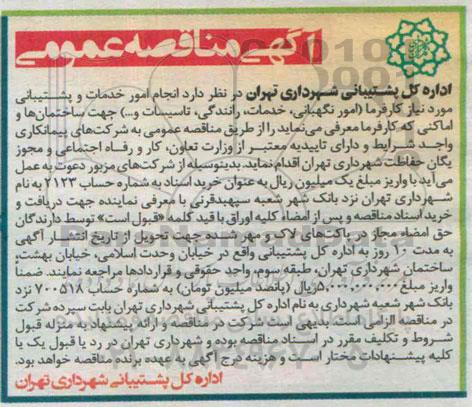 آگهی مناقصه عمومی
اداره کل پشتیبانی شهرداری تهران در نظر دارد انجام امور خدمات و پشتیبانی
مورد نیاز کارفرما (امور نگهبانی، خدمات، رانندگی، تاسیسات و...) جهت ساختمان‌ها و
اماکنی که کارفرما معرفی می‌نماید را از طریق مناقصه عمومی به شرکت‌های پیمانکاری
واجد شرایط و دارای تاییدیه معتبر از وزارت تعاون، کار و رفاه اجتماعی و مجوز
یگان حفاظت شهرداری تهران اقدام نماید. بدینوسیله از شرکت‌های مزبور دعوت به عمل
می‌آید با واریز مبلغ یک میلیون ریال به عنوان خرید اسناد به شماره حساب ۲۱۲۳ به نام
شهرداری تهران نزد بانک شهر شعبه سپهبدقرنی با معرفی نماینده جهت دریافت و
خرید اسناد مناقصه و پس از امضاء کلیه اوراق با قید کلمه «قبول است» توسط دارندگان
حق امضاء مجاز در پاکت‌های لاک و مهر شده جهت تحویل از تاریخ انتشار آگهی
به مدت ۱۰ روز به اداره کل پشتیبانی واقع در خیابان وحدت اسلامی، خیابان بهشت،
ساختمان شهرداری تهران، طبقه سوم، واحد حقوقی و قراردادها مراجعه نمایند. ضمناً
واریز مبلغ ۵،۰۰۰،۰۰۰،۰۰۰ ریال (پانصد میلیون تومان) به شماره حساب ۷۰۰۵۱۸ نزد
بانک شهر شعبه شهرداری به نام اداره کل پشتیبانی شهرداری تهران بابت سپرده شرکت
در مناقصه الزامی است. بدیهی است شرکت در مناقصه و ارائه پیشنهاد به منزله قبول
شروط و تکلیف مقرر در اسناد مناقصه بوده و شهرداری تهران در رد یا قبول یک یا
کلیه پیشنهادات مختار است و هزینه درج آگهی به عهده برنده مناقصه خواهد بود.
اداره کل پشتیبانی شهرداری تهران